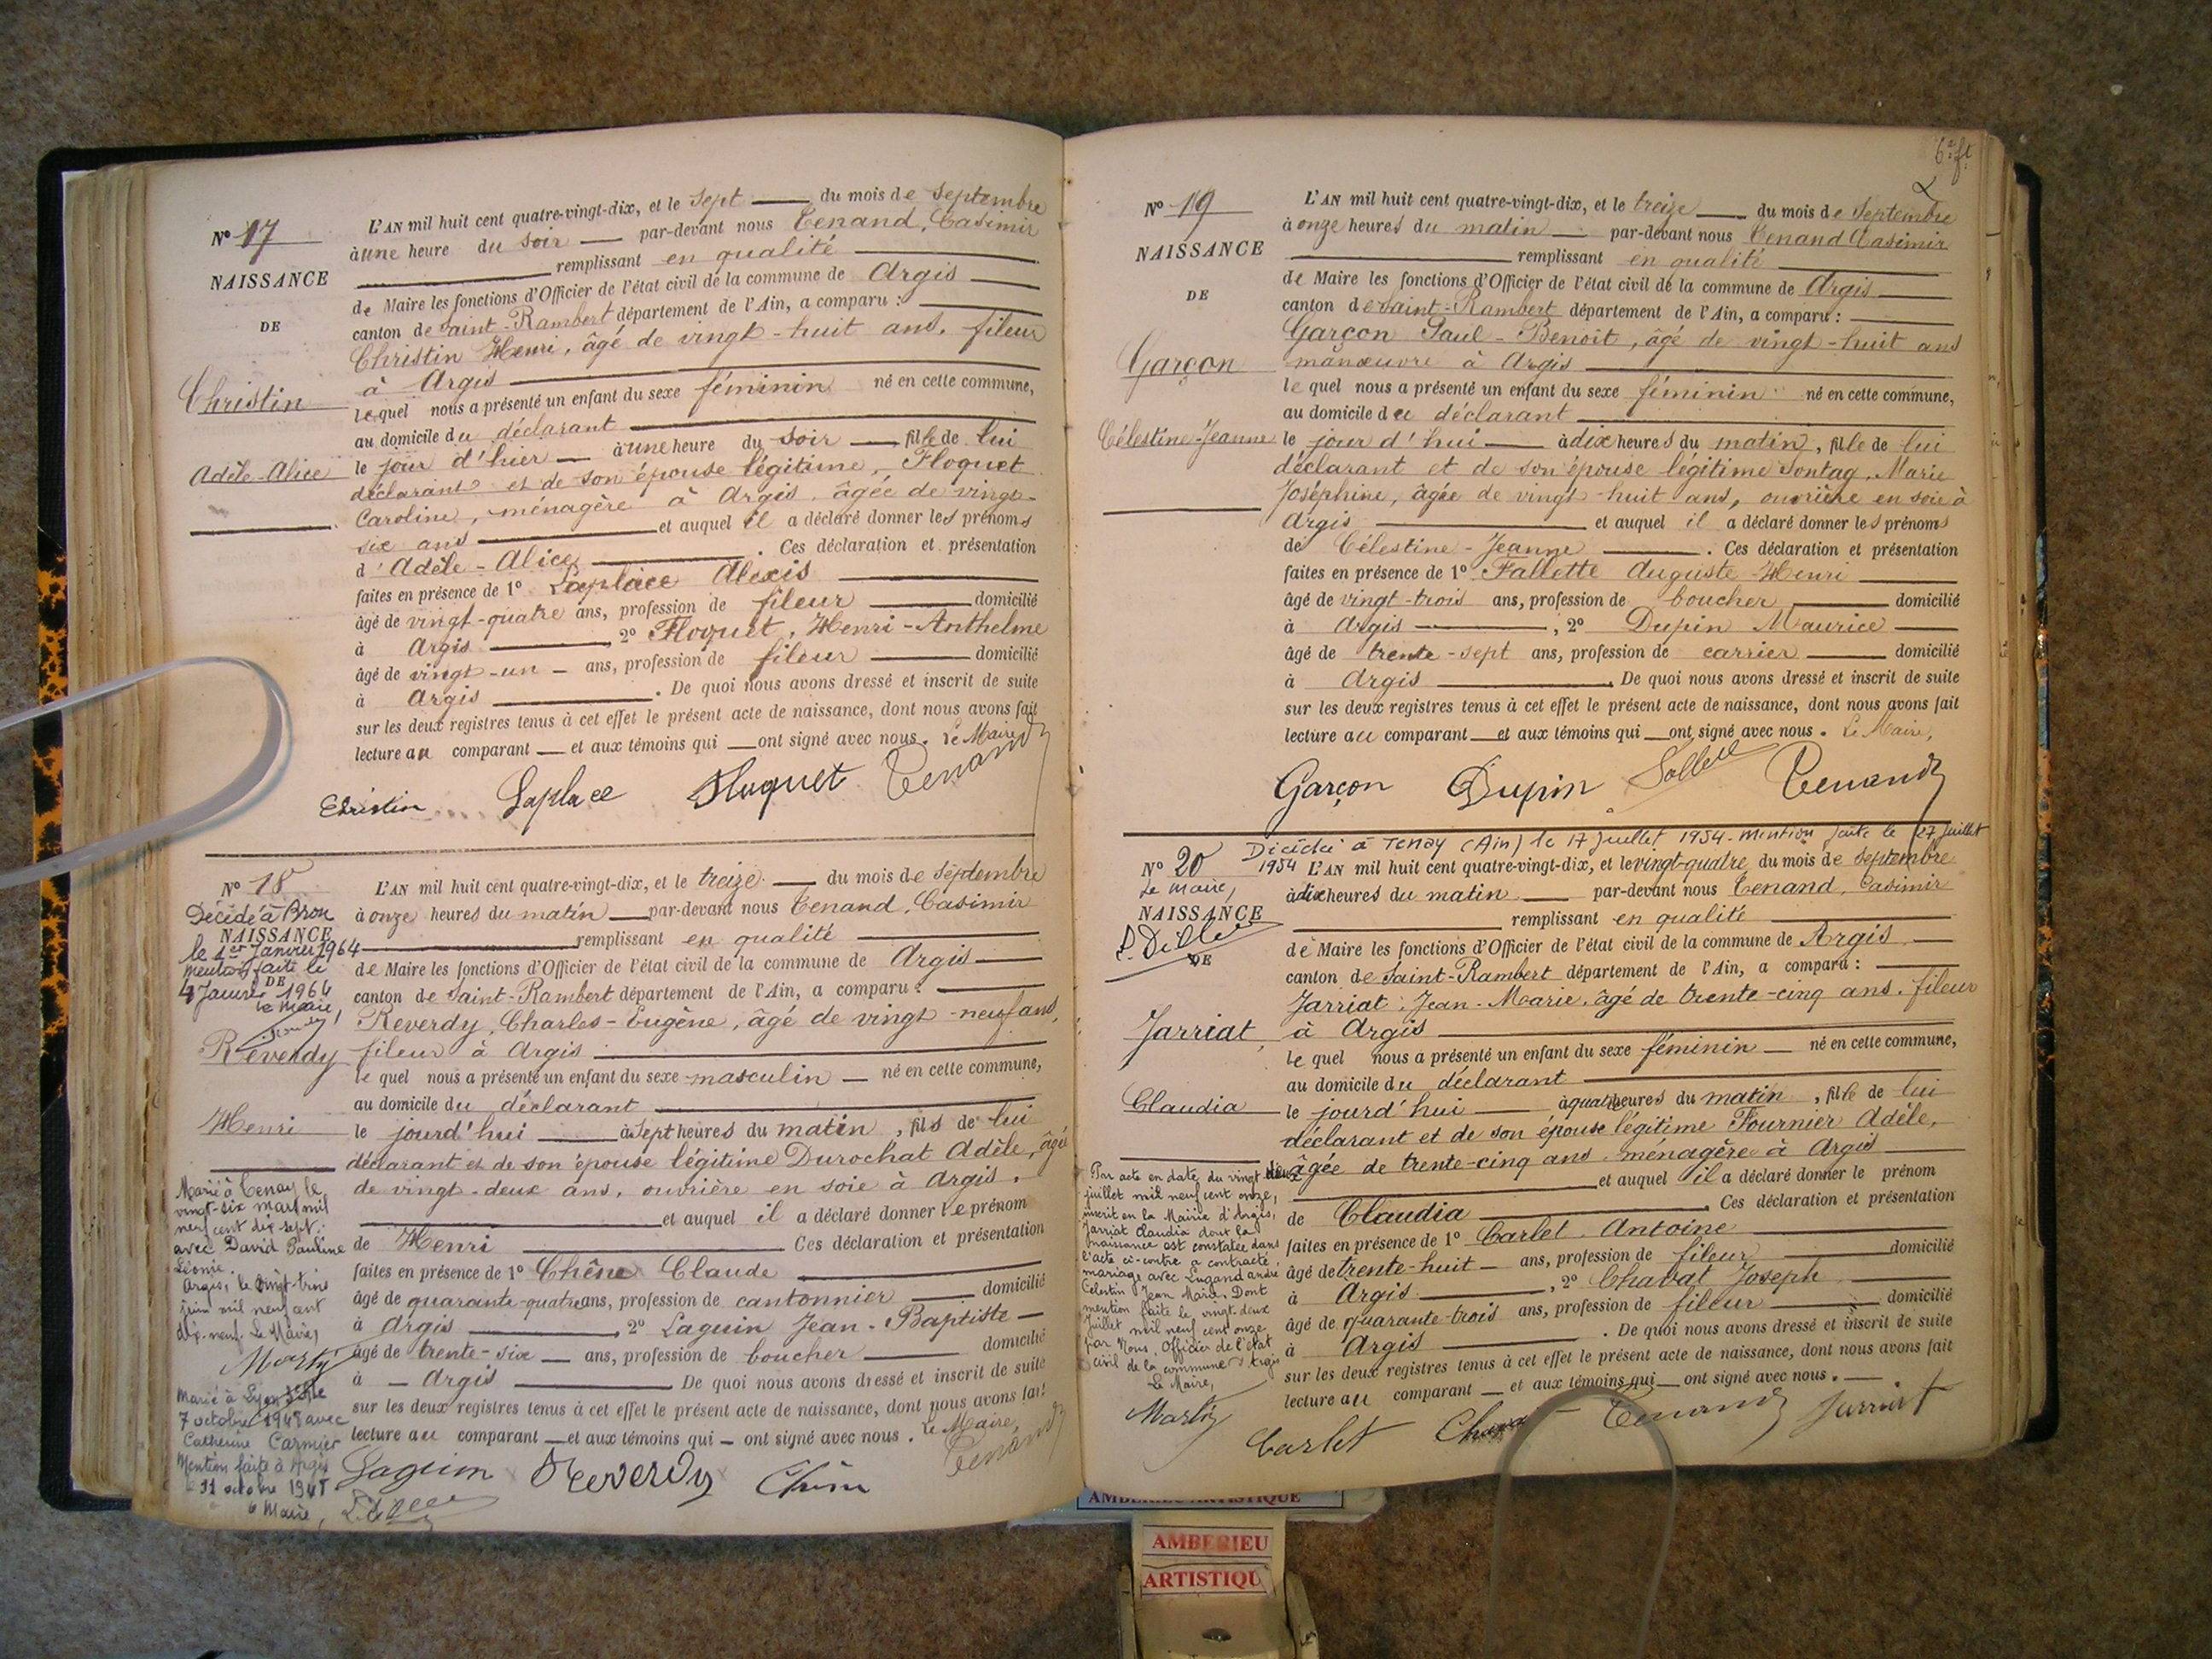 Nº 17
NAISSANCE
DE
Christin
Adèle-Alice
L'AN mil huit cent quatre-vingt-dix, et le sept du mois de septembre
à une heure du soir par-devant nous Tenand, Casimir
remplissant en qualité
de Maire les fonctions d'Officier de l'état civil de la commune de Argis
canton de Saint-Rambert département de l'Ain, a comparu :
Christin Henri, âgé de vingt-huit ans, fileur
à Argis
lequel nous a présenté un enfant du sexe féminin né en cette commune,
au domicile du déclarant
le jour d'hier à une heure du soir fille de lui
déclarant et de son épouse légitime, Floquet
Caroline, ménagère à Argis, âgée de vingt-
six ans et auquel il a déclaré donner les prénoms
d'Adèle-Alice. Ces déclaration et présentation
faites en présence de 1º Laplace Alexis
âgé de vingt-quatre ans, profession de fileur domicilié
à Argis 2º Floquet, Henri-Anthelme
âgé de vingt-un ans, profession de fileur domicilié
à Argis. De quoi nous avons dressé et inscrit de suite
sur les deux registres tenus à cet effet le présent acte de naissance, dont nous avons fait
lecture au comparant et aux témoins qui ont signé avec nous. Le Maire
Christin Laplace Floquet Tenand
Nº 18
Décédé à Bron
NAISSANCE
le 1er Janvier 1964
Mention faite le
DE
4 Janvier 1964
Le Maire,
Reverdy
Henri
Marié à Tenay le
vingt-six mars mil
neuf cent dix sept,
avec David Pauline
Léonie.
Argis, le vingt-trois
juin mil neuf cent
dix-neuf. Le Maire,
Marié à Lyon
7 octobre 1948 avec
Catherine Carmier
Mention faite à Argis
le 11 octobre 1948
le Maire,
L'AN mil huit cent quatre-vingt-dix, et le treize du mois de septembre
à onze heures du matin par-devant nous Tenand, Casimir
remplissant en qualité
de Maire les fonctions d'Officier de l'état civil de la commune de Argis
canton de Saint-Rambert département de l'Ain, a comparu :
Reverdy, Charles-Eugène, âgé de vingt-neuf ans,
fileur à Argis
lequel nous a présenté un enfant du sexe masculin né en cette commune,
au domicile du déclarant
le jourd'hui à sept heures du matin, fils de lui
déclarant et de son épouse légitime Durochat Adèle, âgée
de vingt-deux ans, ouvrière en soie à Argis.
et auquel il a déclaré donner le prénom
de Henri Ces déclaration et présentation
faites en présence de 1º Chêne Claude
âgé de quarante-quatre ans, profession de cantonnier domicilié
à Argis, 2º Laguin Jean-Baptiste
âgé de trente-six ans, profession de boucher domicilié
à Argis De quoi nous avons dressé et inscrit de suite
sur les deux registres tenus à cet effet le présent acte de naissance, dont nous avons fait
lecture au comparant et aux témoins qui ont signé avec nous. Le Maire
Laguin Reverdy Chêne Tenand
Nº 19
NAISSANCE
DE
Garçon
Célestine-Jeanne
L'AN mil huit cent quatre-vingt-dix, et le treize du mois de septembre
à onze heures du matin par-devant nous Tenand Casimir
remplissant en qualité
de Maire les fonctions d'Officier de l'état civil de la commune de Argis
canton de Saint-Rambert département de l'Ain, a comparu :
Garçon Paul-Benoit, âgé de vingt-huit ans
manœuvre à Argis
lequel nous a présenté un enfant du sexe féminin né en cette commune,
au domicile du déclarant
le jour d'hui à dix heures du matin, fille de lui
déclarant et de son épouse légitime Sontag, Marie
Joséphine, âgée de vingt-huit ans, ouvrière en soie à
Argis et auquel il a déclaré donner les prénoms
de Célestine-Jeanne. Ces déclaration et présentation
faites en présence de 1º Fallette Auguste-Henri
âgé de vingt-trois ans, profession de boucher domicilié
à Argis, 2º Dupin Maurice
âgé de trente-sept ans, profession de carrier domicilié
à Argis. De quoi nous avons dressé et inscrit de suite
sur les deux registres tenus à cet effet le présent acte de naissance, dont nous avons fait
lecture au comparant et aux témoins qui ont signé avec nous. Le Maire,
Garçon Dupin Tenand
Décédée à Tenay (Ain) le 17 Juillet 1954. Mention faite le 27 Juillet
1954
Le Maire,
Nº 20
NAISSANCE
DE
Jarriat
Claudia
Par acte en date du vingt deux
juillet mil neuf cent onze,
inscrit en la Mairie d'Argis,
Jarriat Claudia dont la
naissance est constatée dans
l'acte ci-contre a contracté
mariage avec Lugand André
Célestin Jean Marie. Dont
mention faite le vingt-deux
Juillet mil neuf cent onze
par Nous, Officier de l'état
civil de la commune d'Argis
Le Maire,
L'AN mil huit cent quatre-vingt-dix, et le vingt-quatre du mois de septembre
à dix heures du matin par-devant nous Tenand, Casimir
remplissant en qualité
de Maire les fonctions d'Officier de l'état civil de la commune de Argis
canton de Saint-Rambert département de l'Ain, a comparu :
Jarriat, Jean-Marie, âgé de trente-cinq ans, fileur
à Argis
lequel nous a présenté un enfant du sexe féminin né en cette commune,
au domicile du déclarant
le jourd'hui à quatre heures du matin, fille de lui
déclarant et de son épouse légitime Fournier Adèle,
âgée de trente-cinq ans ménagère à Argis
et auquel il a déclaré donner le prénom
de Claudia. Ces déclaration et présentation
faites en présence de 1º Carlet Antoine
âgé de trente-huit ans, profession de fileur domicilié
à Argis, 2º Chavat Joseph
âgé de quarante-trois ans, profession de fileur domicilié
à Argis. De quoi nous avons dressé et inscrit de suite
sur les deux registres tenus à cet effet le présent acte de naissance, dont nous avons fait
lecture au comparant et aux témoins qui ont signé avec nous.
Carlet Tenand Jarriat
AMBERIEU ARTISTIQUE
AMBERIEU
ARTISTIQU